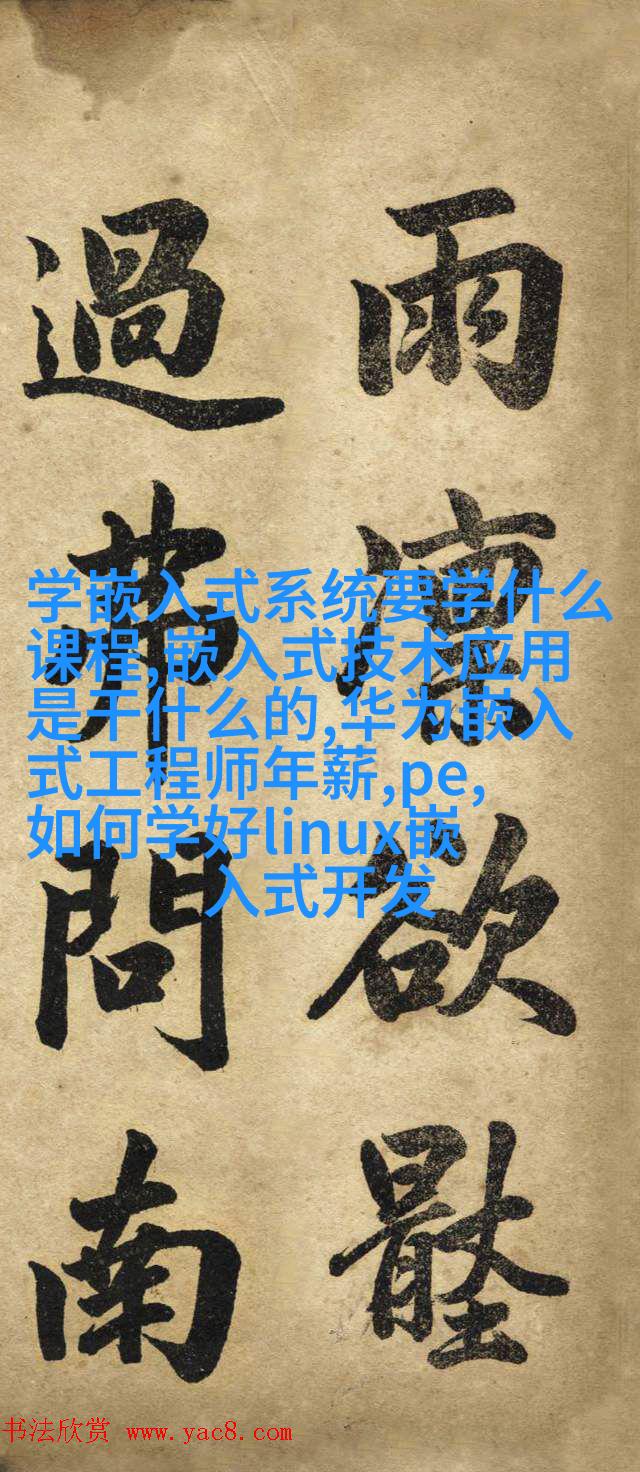 雨凛欲
過問南
学嵌入式系统要学什么
课程,嵌入式技术应用
是干什么的,华为嵌入
式工程师年薪,pe,
如何学好linux嵌
入式开发
书法欣赏 www.yac8.com